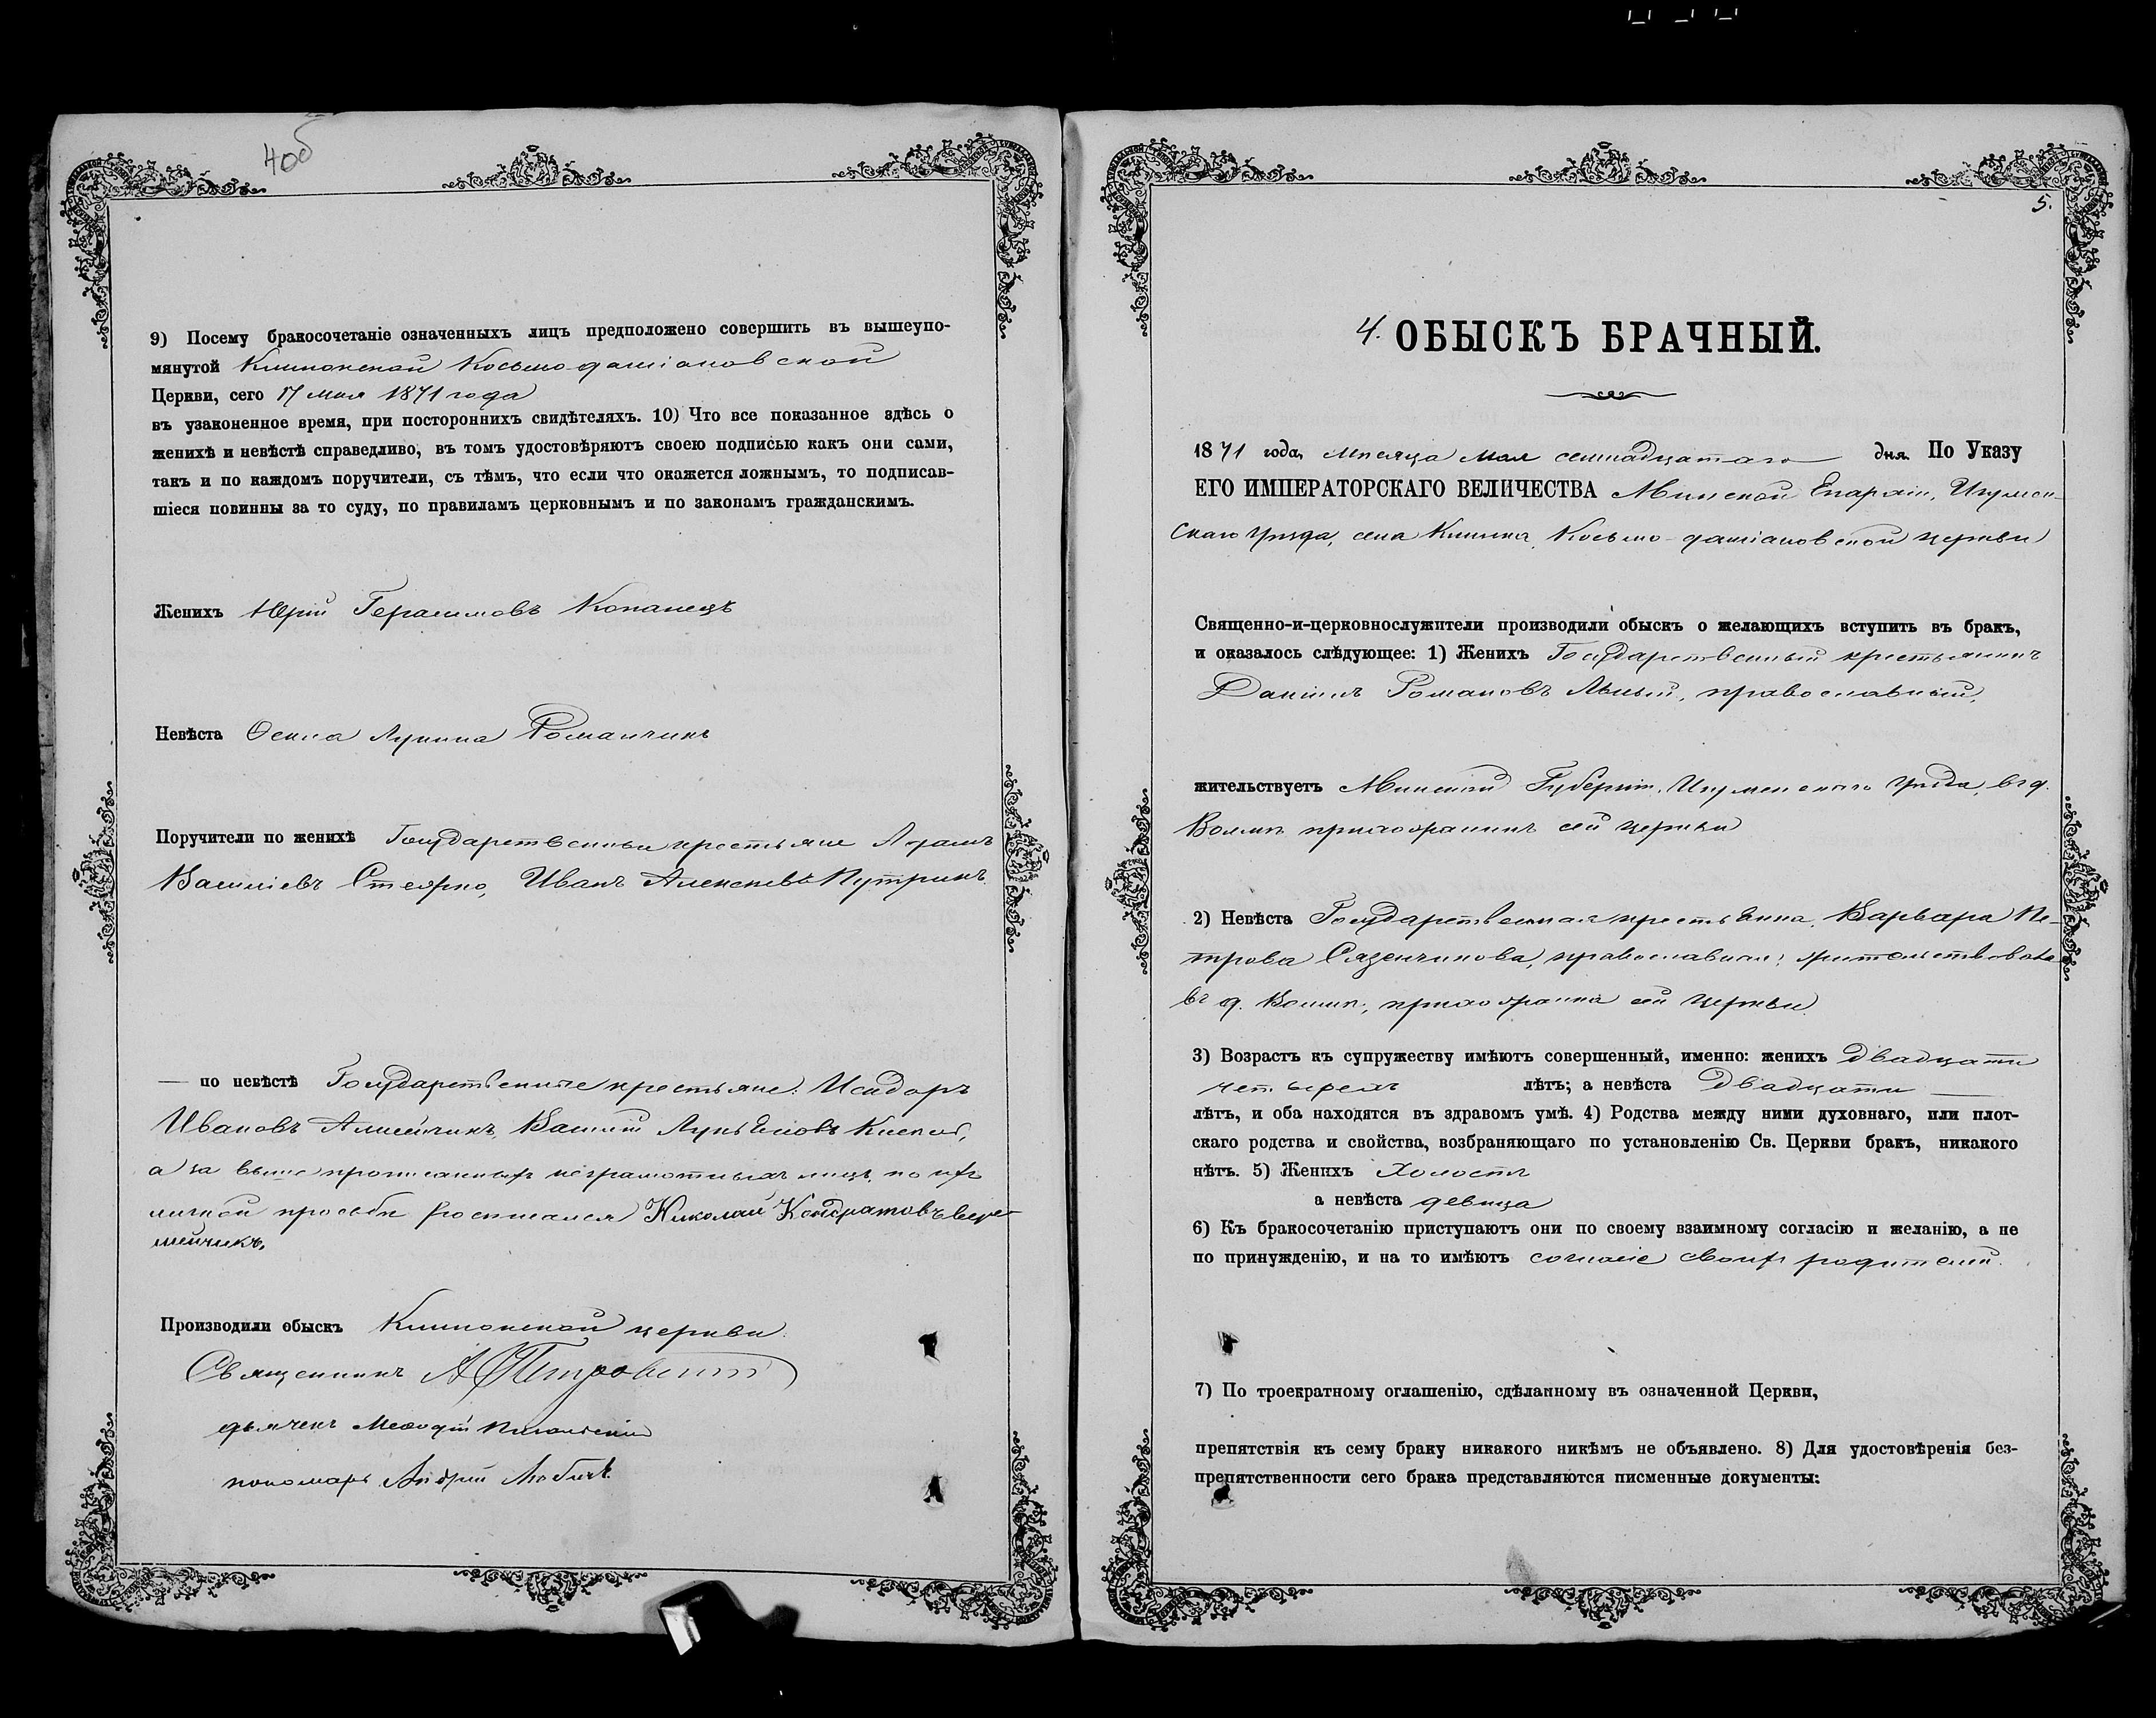 4об
9) Посему бракосочетаніе означенныхъ лицъ предположено совершить въ вышеупо-
мянутой Клинокской Косьмо-даміановской
Церкви, сего 17 мая 1871 года
въ узаконенное время, при постороннихъ свидѣтеляхъ. 10) Что все показанное здѣсь о
женихѣ и невѣстѣ справедливо, въ томъ удостовѣряютъ своею подписью какъ они сами,
такъ и по каждомъ поручители, съ тѣмъ, что если что окажется ложнымъ, то подписав-
шіеся повинны за то суду, по правиламъ церковнымъ и по законамъ гражданскимъ.
Женихъ Юрій Герасимовъ Копанецъ
Невѣста Ѳекла Лукина Романчикъ
Поручители по женихѣ Государственные крестьяне
Василіевъ Иванъ Алексѣевъ
— по невѣстѣ Государственные крестьяне: Исидоръ
Ивановъ Василій Лукьяновъ
а за выше прописанныхъ неграмотныхъ лицъ, по ихъ
личной просьбѣ росписался Николай Кондратовъ Вере-
мейчикъ.
Производили обыскъ Клинокской церкви
Священникъ
дьячекъ Меѳодій
пономарь Андрей
5.
4. ОБЫСКЪ БРАЧНЫЙ.
1871 года, мѣсяца мая семнадцатаго дня. По Указу
ЕГО ИМПЕРАТОРСКАГО ВЕЛИЧЕСТВА Минской Епархіи, Игумен-
скаго уѣзда, села Клинка, Косьмо-даміановской церкви
Священно-и-церковнослужители производили обыскъ о желающихъ вступить въ бракъ,
и оказалось слѣдующее: 1) Женихъ Государственный крестьянинъ
Даніилъ Романовъ православный,
жительствуетъ Минской Губерніи, Игуменскаго уѣзда, въ д.
прихожанинъ сей церкви
2) Невѣста Государственная крестьянка, Варвара Пе-
трова православная, жительствовала
въ д. прихожанка сей церкви
3) Возрастъ къ супружеству имѣютъ совершенный, именно: женихъ двадцати
четырехъ лѣтъ; а невѣста двадцати
лѣтъ, и оба находятся въ здравомъ умѣ. 4) Родства между ними духовнаго, или плот-
скаго родства и свойства, возбраняющаго по установленію Св. Церкви бракъ, никакого
нѣтъ. 5) Женихъ холостъ
а невѣста девица
6) Къ бракосочетанію приступаютъ они по своему взаимному согласію и желанію, а не
по принужденію, и на то имѣютъ согласіе своихъ родителей.
7) По троекратному оглашенію, сдѣланному въ означенной Церкви,
препятствія къ сему браку никакого никѣмъ не объявлено. 8) Для удостовѣренія без-
препятственности сего брака представляются писменные документы: